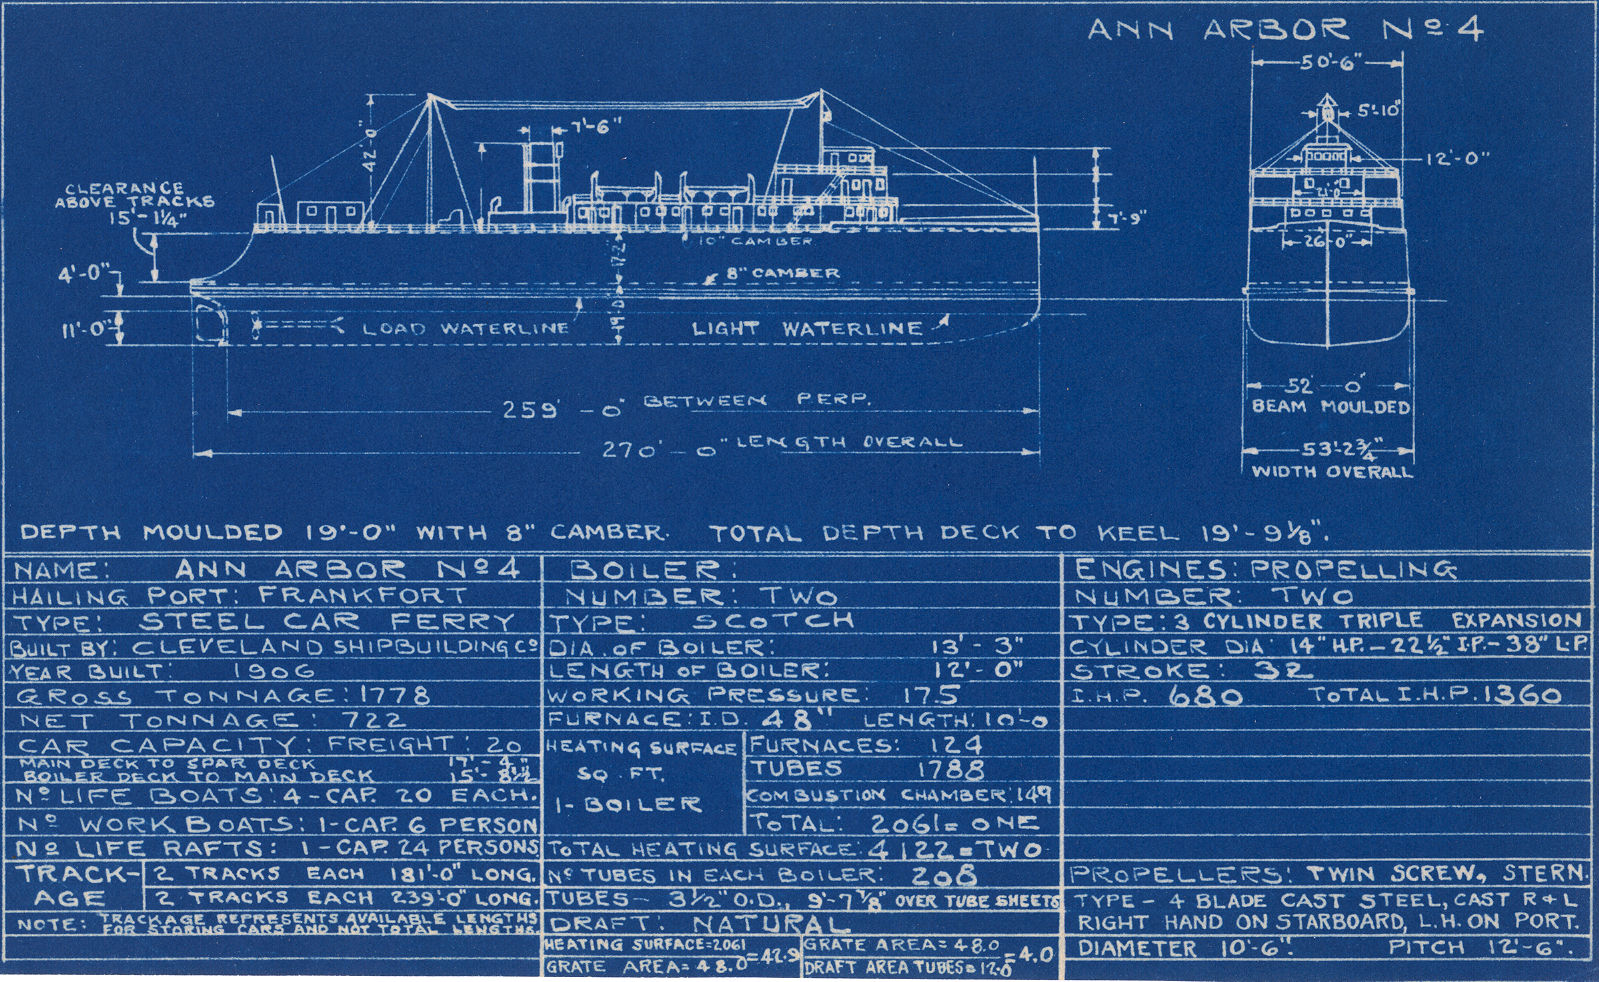 ANN ARBOR Nº 4
50'-6"
5'-10"
12'-0"
21'-0"
26'-0"
7'-6"
42'-0"
CLEARANCE
ABOVE TRACKS
15'-1¼"
7'-9"
10" CAMBER
17'-2"
8" CAMBER
4'-0"
11'-0"
19'-0"
LOAD WATERLINE
LIGHT WATERLINE
259'-0" BETWEEN PERP.
270'-0" LENGTH OVERALL
52'-0"
BEAM MOULDED
53'-2¾"
WIDTH OVERALL
DEPTH MOULDED 19'-0" WITH 8" CAMBER. TOTAL DEPTH DECK TO KEEL 19'-9⅛".
NAME: ANN ARBOR Nº 4
HAILING PORT: FRANKFORT
TYPE: STEEL CAR FERRY
BUILT BY: CLEVELAND SHIPBUILDING Cº
YEAR BUILT: 1906
GROSS TONNAGE: 1778
NET TONNAGE: 722
CAR CAPACITY: FREIGHT: 20
MAIN DECK TO SPAR DECK 17'-4"
BOILER DECK TO MAIN DECK 15'-8½
Nº LIFE BOATS: 4-CAP. 20 EACH.
Nº WORK BOATS: 1-CAP. 6 PERSON
Nº LIFE RAFTS: 1-CAP. 24 PERSONS
TRACK-
AGE
2 TRACKS EACH 181'-0" LONG.
2 TRACKS EACH 239'-0" LONG.
NOTE: TRACKAGE REPRESENTS AVAILABLE LENGTHS
FOR STORING CARS AND NOT TOTAL LENGTHS.
BOILER:
NUMBER: TWO
TYPE: SCOTCH
DIA. OF BOILER: 13'-3"
LENGTH OF BOILER: 12'-0"
WORKING PRESSURE: 175
FURNACE: I.D. 48" LENGTH: 10'-0
HEATING SURFACE
SQ. FT.
1-BOILER
FURNACES: 124
TUBES 1788
COMBUSTION CHAMBER: 149
TOTAL: 2061= ONE
TOTAL HEATING SURFACE: 4122=TWO
Nº TUBES IN EACH BOILER: 208
TUBES- 3½" O.D., 9'-7⅞" OVER TUBE SHEETS
DRAFT: NATURAL
HEATING SURFACE=2061
GRATE AREA= 48.0
=42.9
GRATE AREA= 48.0
DRAFT AREA TUBES= 12.0
=4.0
ENGINES: PROPELLING
NUMBER: TWO
TYPE: 3 CYLINDER TRIPLE EXPANSION
CYLINDER DIA: 14" H.P.-22½" I.P.-38" L.P.
STROKE: 32
I.H.P. 680 TOTAL I.H.P. 1360
PROPELLERS: TWIN SCREW, STERN.
TYPE - 4 BLADE CAST STEEL, CAST R & L
RIGHT HAND ON STARBOARD, L.H. ON PORT.
DIAMETER 10'-6". PITCH 12'-6".